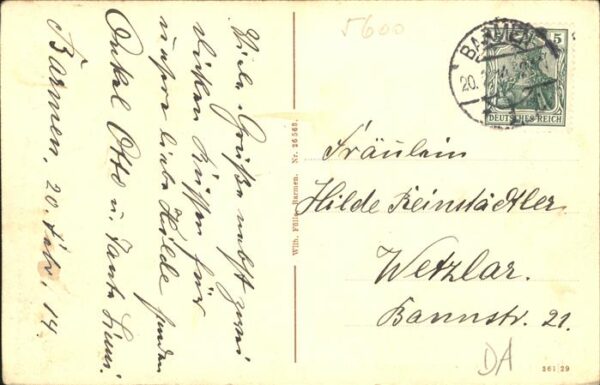 Viele Grüße nebst zwei
dicken Küssen für
unsere liebe Hilde senden
Onkel Otto u. Tante
Barmen, 20. Febr. 14.
Wilh. Fülle, Barmen. Nr. 26568.
5600
BARMEN
20.
5
DEUTSCHES REICH
Fräulein
Hilde Reinstädtler
Wetzlar.
Bannstr. 21.
DA
361 29